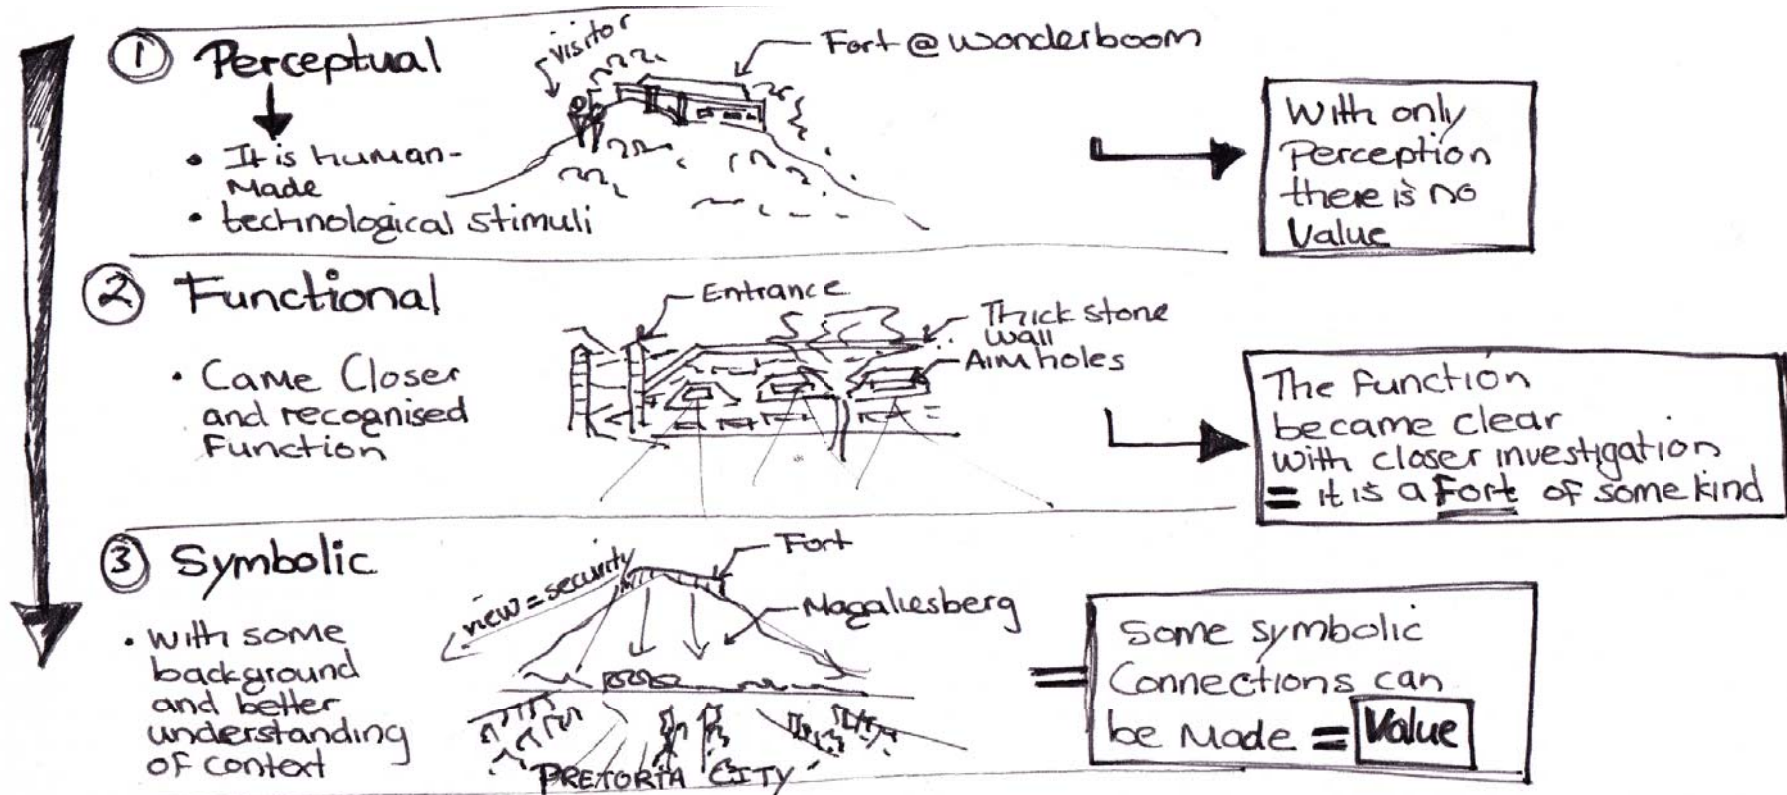 1 Perceptual
• It is human-
Made
• technological stimuli
visitor
Fort @ Wonderboom
With only
Perception
there is no
Value
2 Functional
• Came Closer
and recognised
Function
Entrance
Thick stone
wall
Aim holes
The Function
became clear
with closer investigation
= it is a Fort of some kind
3 Symbolic
• with some
background
and better
understanding
of context
view = security
Fort
Magaliesberg
PRETORIA CITY
Some symbolic
Connections can
be Made = Value